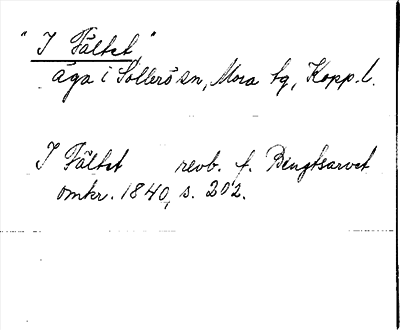 "I Fältet,"
äga i Sollerö sn, Mora tg, Kopp. l.
I Fältet revb. f. Bengtsarvet
omkr. 1840, s. 202.